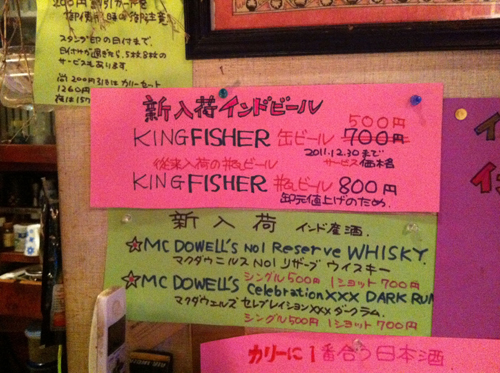 200円割引カードを
御使用時の御注意
スタンプ印の日付まで、
のサービスもあります。
尚200円引はカリーセット
1260円
新入荷インドビール
500円
KINGFISHER 缶ビール 700円
2011.12.30まで
サービス価格
従来入荷の瓶ビール
KINGFISHER 瓶ビール 800円
卸元値上げのため.
新入荷 インド産酒.
☆MC DOWELL'S No1 Reserve WHISKY.
マクダウニルス No1 リザーブ ウイスキー
シングル500円 1ショット700円
☆MC DOWELL'S Celebration XXX DARK RUM
マクダウェルズ セレブレイション XXX ダークラム.
シングル500円 1ショット700円
カリーに1番合う日本酒